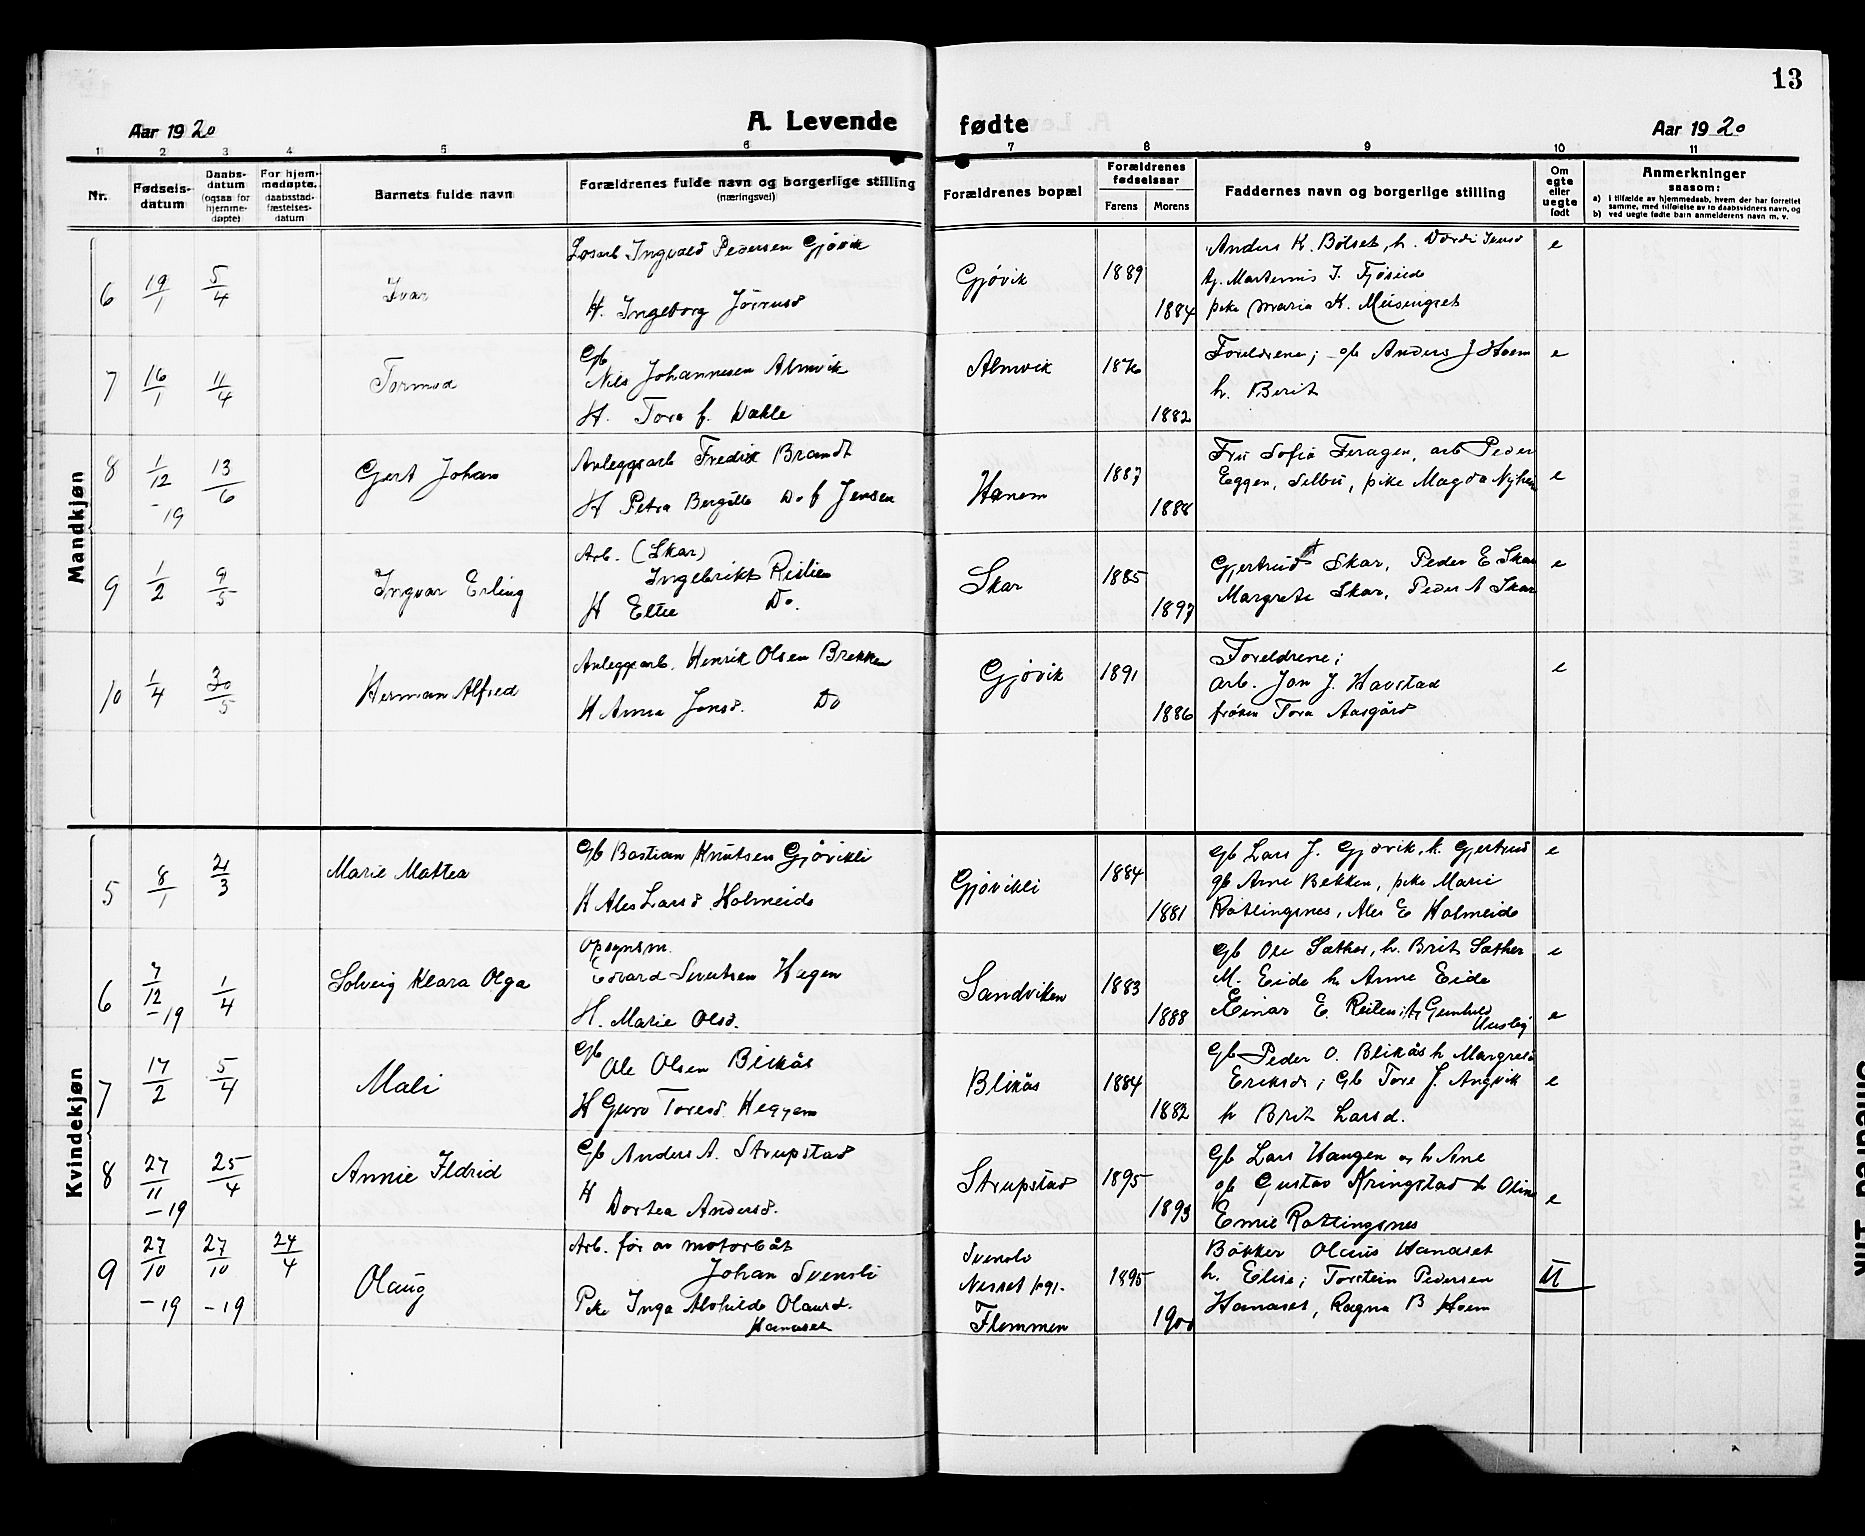 13
Aar 1920
A. Levende fødte
Aar 1920
1 2 3 4 5 6 7 8 9 10 11
Nr.
Fødsels-
datum
Daabs-
datum
(ogsaa for
hjemme-
døpte)
For hjem-
medøpte.
daabsstad-
fæstelses-
datum
Barnets fulde navn
Forældrenes fulde navn og borgerlige stilling
(næringsvei)
Forældrenes bopæl
Forældrenes
fødselsaar
Farens Morens
Faddernes navn og borgerlige stilling
Om
egte
eller
uegte
født
Anmerkninger
saasom:
a) i tilfælde av hjemmedaab, hvem der har forrettet
samme, med tilføielse av to daabsvidners navn, og
b) ved uegte fødte barn anmelderens navn m. v.
Mandkjøn
6 19/1 5/4 Ivar
Løsarb Ingvald Pedersen Gjøvik
H. Ingeborg
Gjøvik 1889 1884
Anders K. Bølset, h.
tj. Marternus J.
pike Maria K. Meisingset
e
7 16/1 11/4 Tormod
Gb
Nils Johannesen Almvik
H. Tora f. Dahle
Almvik 1876 1882
Foreldrene; gb Anders J Hoem
h. Berit
e
8 1/12 -19 13/6 Gert Johan
Anleggsarb Fredrik Brandt
H Petra Bergitte Do f Jensen
Hanem 1887 1888
Fru Sofia Feragen, arb Peder
Eggen, Selbu, pike Magda Nyhen
e
9 1/2 9/5 Ingvar Erling
Arb. (Skar)
Ingebrikt
H Do.
Skar 1885 1897
Gjertrud Skar, Peder E Skar
Margrete Skar, Peder A Skar
e
10 1/4 30/5 Herman Alfred
Anleggsarb. Henrik Olsen Brekken
H Anna Jonsd. Do
Gjøvik 1891 1886
Foreldrene;
arb. Jon J. Havstad
frøken Tora Aasgård
e
Kvindekjøn
5 8/1 21/3 Marie Mattea
Gb Bastian Knutsen Gjøvikli
H Ales Larsd Holmeide
Gjøvikli 1884 1881
Gb Lars J. Gjøvik, h. Gjertrud
gb Arne Bekken, pike Marie
Rotlingsnes, Ales E Holmeide
e
6 7/12 -19 1/4 Solveig Klara Olga
Opsynsm.
Edvard Sivertsen Hagen
H. Marie Olsd.
Sandviken 1883 1888
Gb Ole Sæther, h. Brit Sæther
M. Eide h Anne Eide
Einar E. Reiten;
e
7 17/2 5/4 Mali
Gb
Ole Olsen Blikås
H Guro Toresd. Heggem
Blikås 1884 1882
Gb Peder O. Blikås h Margrete
Eriksdr; Gb Tore J. Angvik
h Brit Larsd.
e
8 27/11 -19 25/4 Annie Ildrid
Gb Anders A. Strupstad
H
Dortea Andersd.
Strupstad 1895 1893
Gb Lars Haugen og h Ane
gb Gustav Kringstad h Oline
Emil Rotlingsnes
e
9 27/10 -19 27/10 -19 24/4 Olaug
Arb. før av motorbåt
Johan Svensli
Pike Inga Alvhilde Olausd.
Hanaset
Svensli
Nesset
Flemmen
1895 1900
Bøkker Olaus Hanaset
h. Elise; Torstein Pedersen
Hanaset, Ragna B Hoem
U